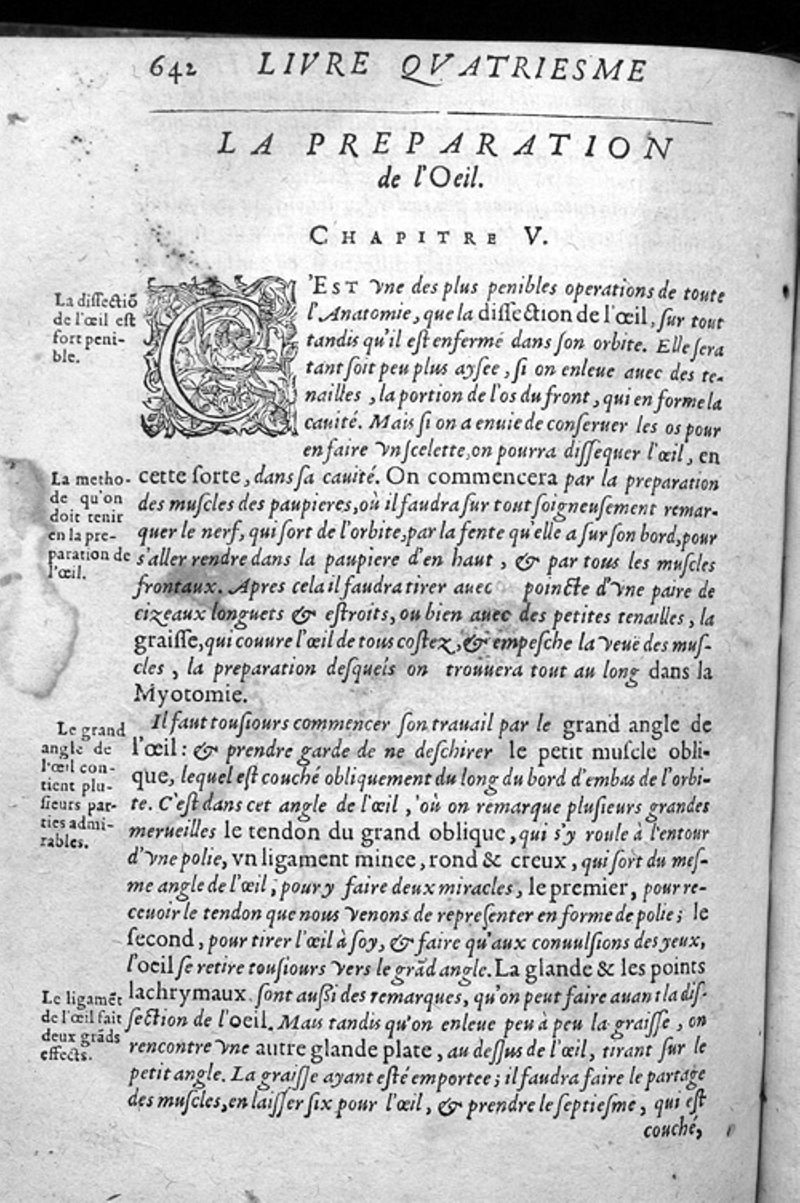 642 LIVRE QVATRIESME
LA PREPARATION
de l'Oeil.
CHAPITRE V.
La dissectiō
de l'œil est
fort peni-
ble.
C'EST vne des plus penibles operations de toute
l'Anatomie, que la dissection de l'œil, sur tout
tandis qu'il est enfermé dans son orbite. Elle sera
tant soit peu plus aysee, si on enleue auec des te-
nailles, la portion de l'os du front, qui en forme la
cauité. Mais si on a enuie de conseruer les os pour
en faire vn scelette, on pourra dissequer l'œil, en
La metho-
de qu'on
doit tenir
en la pre-
paration de
l'œil.
cette sorte, dans sa cauité. On commencera par la preparation
des muscles des paupieres, où il faudra sur tout soigneusement remar-
quer le nerf, qui sort de l'orbite, par la fente qu'elle a sur son bord, pour
s'aller rendre dans la paupiere d'en haut, & par tous les muscles
frontaux. Apres cela il faudra tirer auec poincte d'vne paire de
cizeaux longuets & estroits, ou bien auec des petites tenailles, la
graisse, qui couure l'œil de tous costez, & empesche la veuë des mus-
cles, la preparation desquels on trouuera tout au long dans la
Myotomie.
Le grand
angle de
l'œil con-
tient plu-
sieurs par-
ties admi-
rables.
Il faut tousiours commencer son trauail par le grand angle de
l'œil: & prendre garde de ne deschirer le petit muscle obli-
que, lequel est couché obliquement du long du bord d'embas de l'orbi-
te. C'est dans cet angle de l'œil, où on remarque plusieurs grandes
merueilles le tendon du grand oblique, qui s'y roule à l'entour
d'vne polie, vn ligament mince, rond & creux, qui sort du mes-
me angle de l'œil, pour y faire deux miracles, le premier, pour re-
ceuoir le tendon que nous venons de representer en forme de polie; le
second, pour tirer l'œil à soy, & faire qu'aux conuulsions des yeux,
l'oeil se retire tousiours vers le grād angle. La glande & les points
Le ligamēt
de l'œil fait
deux grāds
effects.
lachrymaux sont aussi des remarques, qu'on peut faire auant la dis-
section de l'oeil. Mais tandis qu'on enleue peu à peu la graisse, on
rencontre vne autre glande plate, au dessus de l'œil, tirant sur le
petit angle. La graisse ayant esté emportee; il faudra faire le partage
des muscles, en laisser six pour l'œil, & prendre le septiesme, qui est
couché,